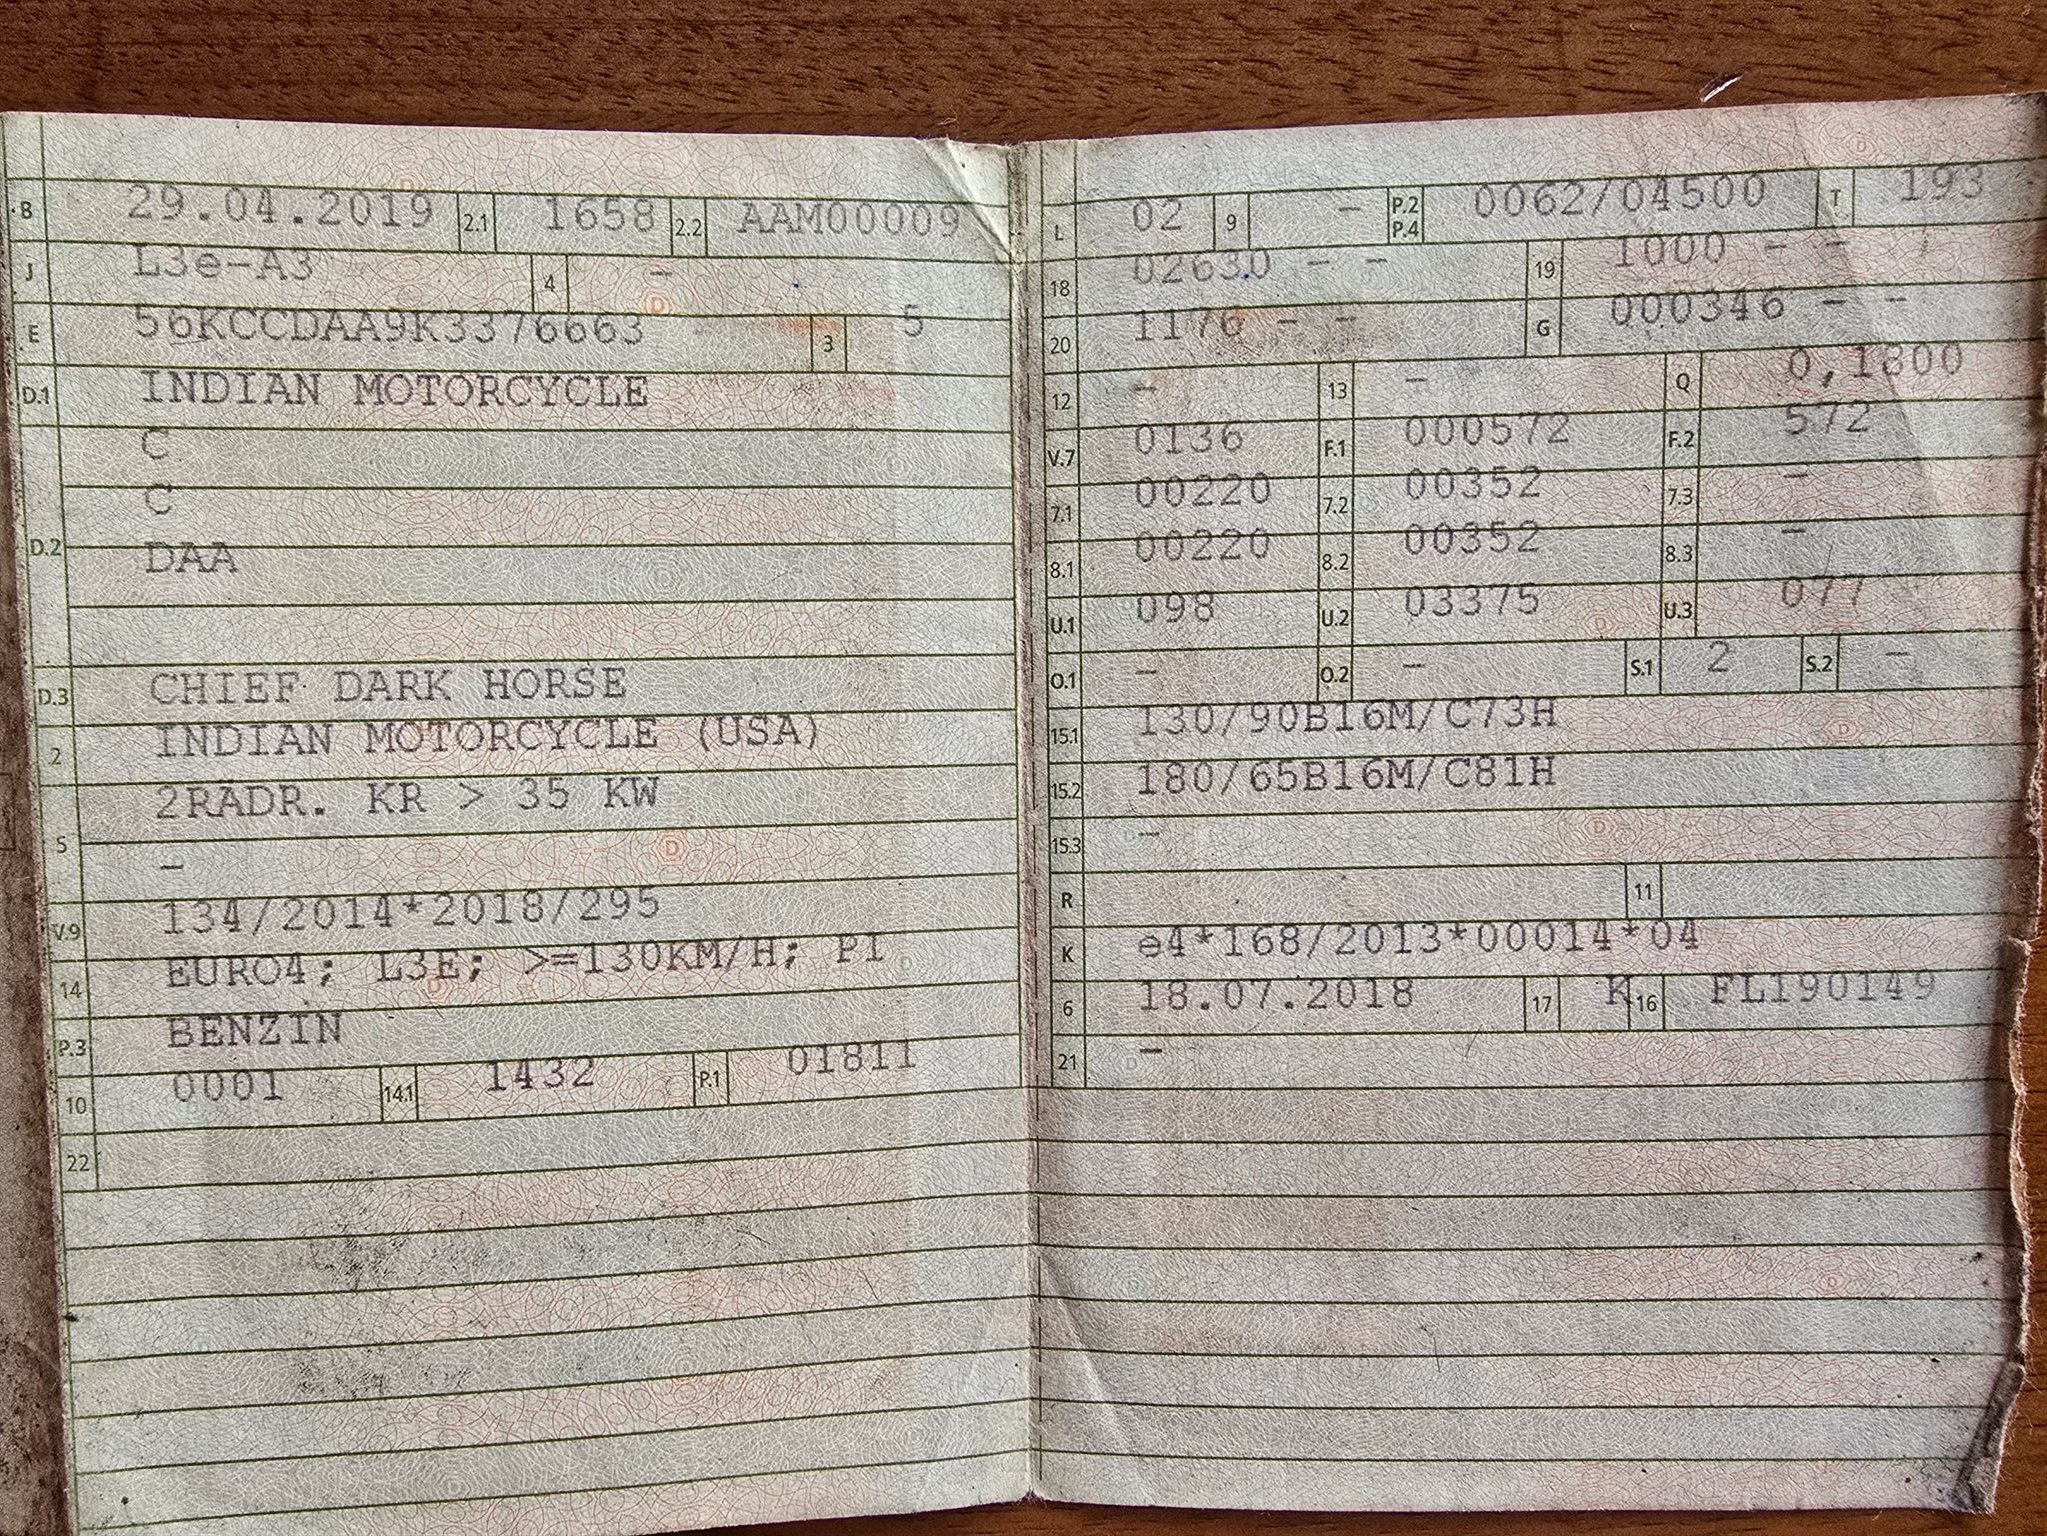 B 29.04.2019 2.1 1658 2.2 AAM00009
J L3e-A3 4 -
E 56KCCDAA9K3376663 3 5
D.1 INDIAN MOTORCYCLE
C
C
D.2 DAA
D.3 CHIEF DARK HORSE
2 INDIAN MOTORCYCLE (USA)
2RÄDR. KR > 35 KW
5 -
V.9 134/2014*2018/295
14 EURO4; L3E; >=130KM/H; PI
P.3 BENZIN
10 0001 14.1 1432 P.1 01811
22
L 02 9 - P.2 P.4 0062/04500 T 193
18 02630 - - 19 1000 - -
20 1176 - - G 000346 - -
12 - 13 - Q 0,1800
V.7 0136 F.1 000572 F.2 572
7.1 00220 7.2 00352 7.3 -
8.1 00220 8.2 00352 8.3 -
U.1 098 U.2 03375 U.3 077
O.1 - O.2 - S.1 2 S.2 -
15.1 130/90B16M/C73H
15.2 180/65B16M/C81H
15.3 -
R 11
K e4*168/2013*00014*04
6 18.07.2018 17 K 16 FL190149
21 -